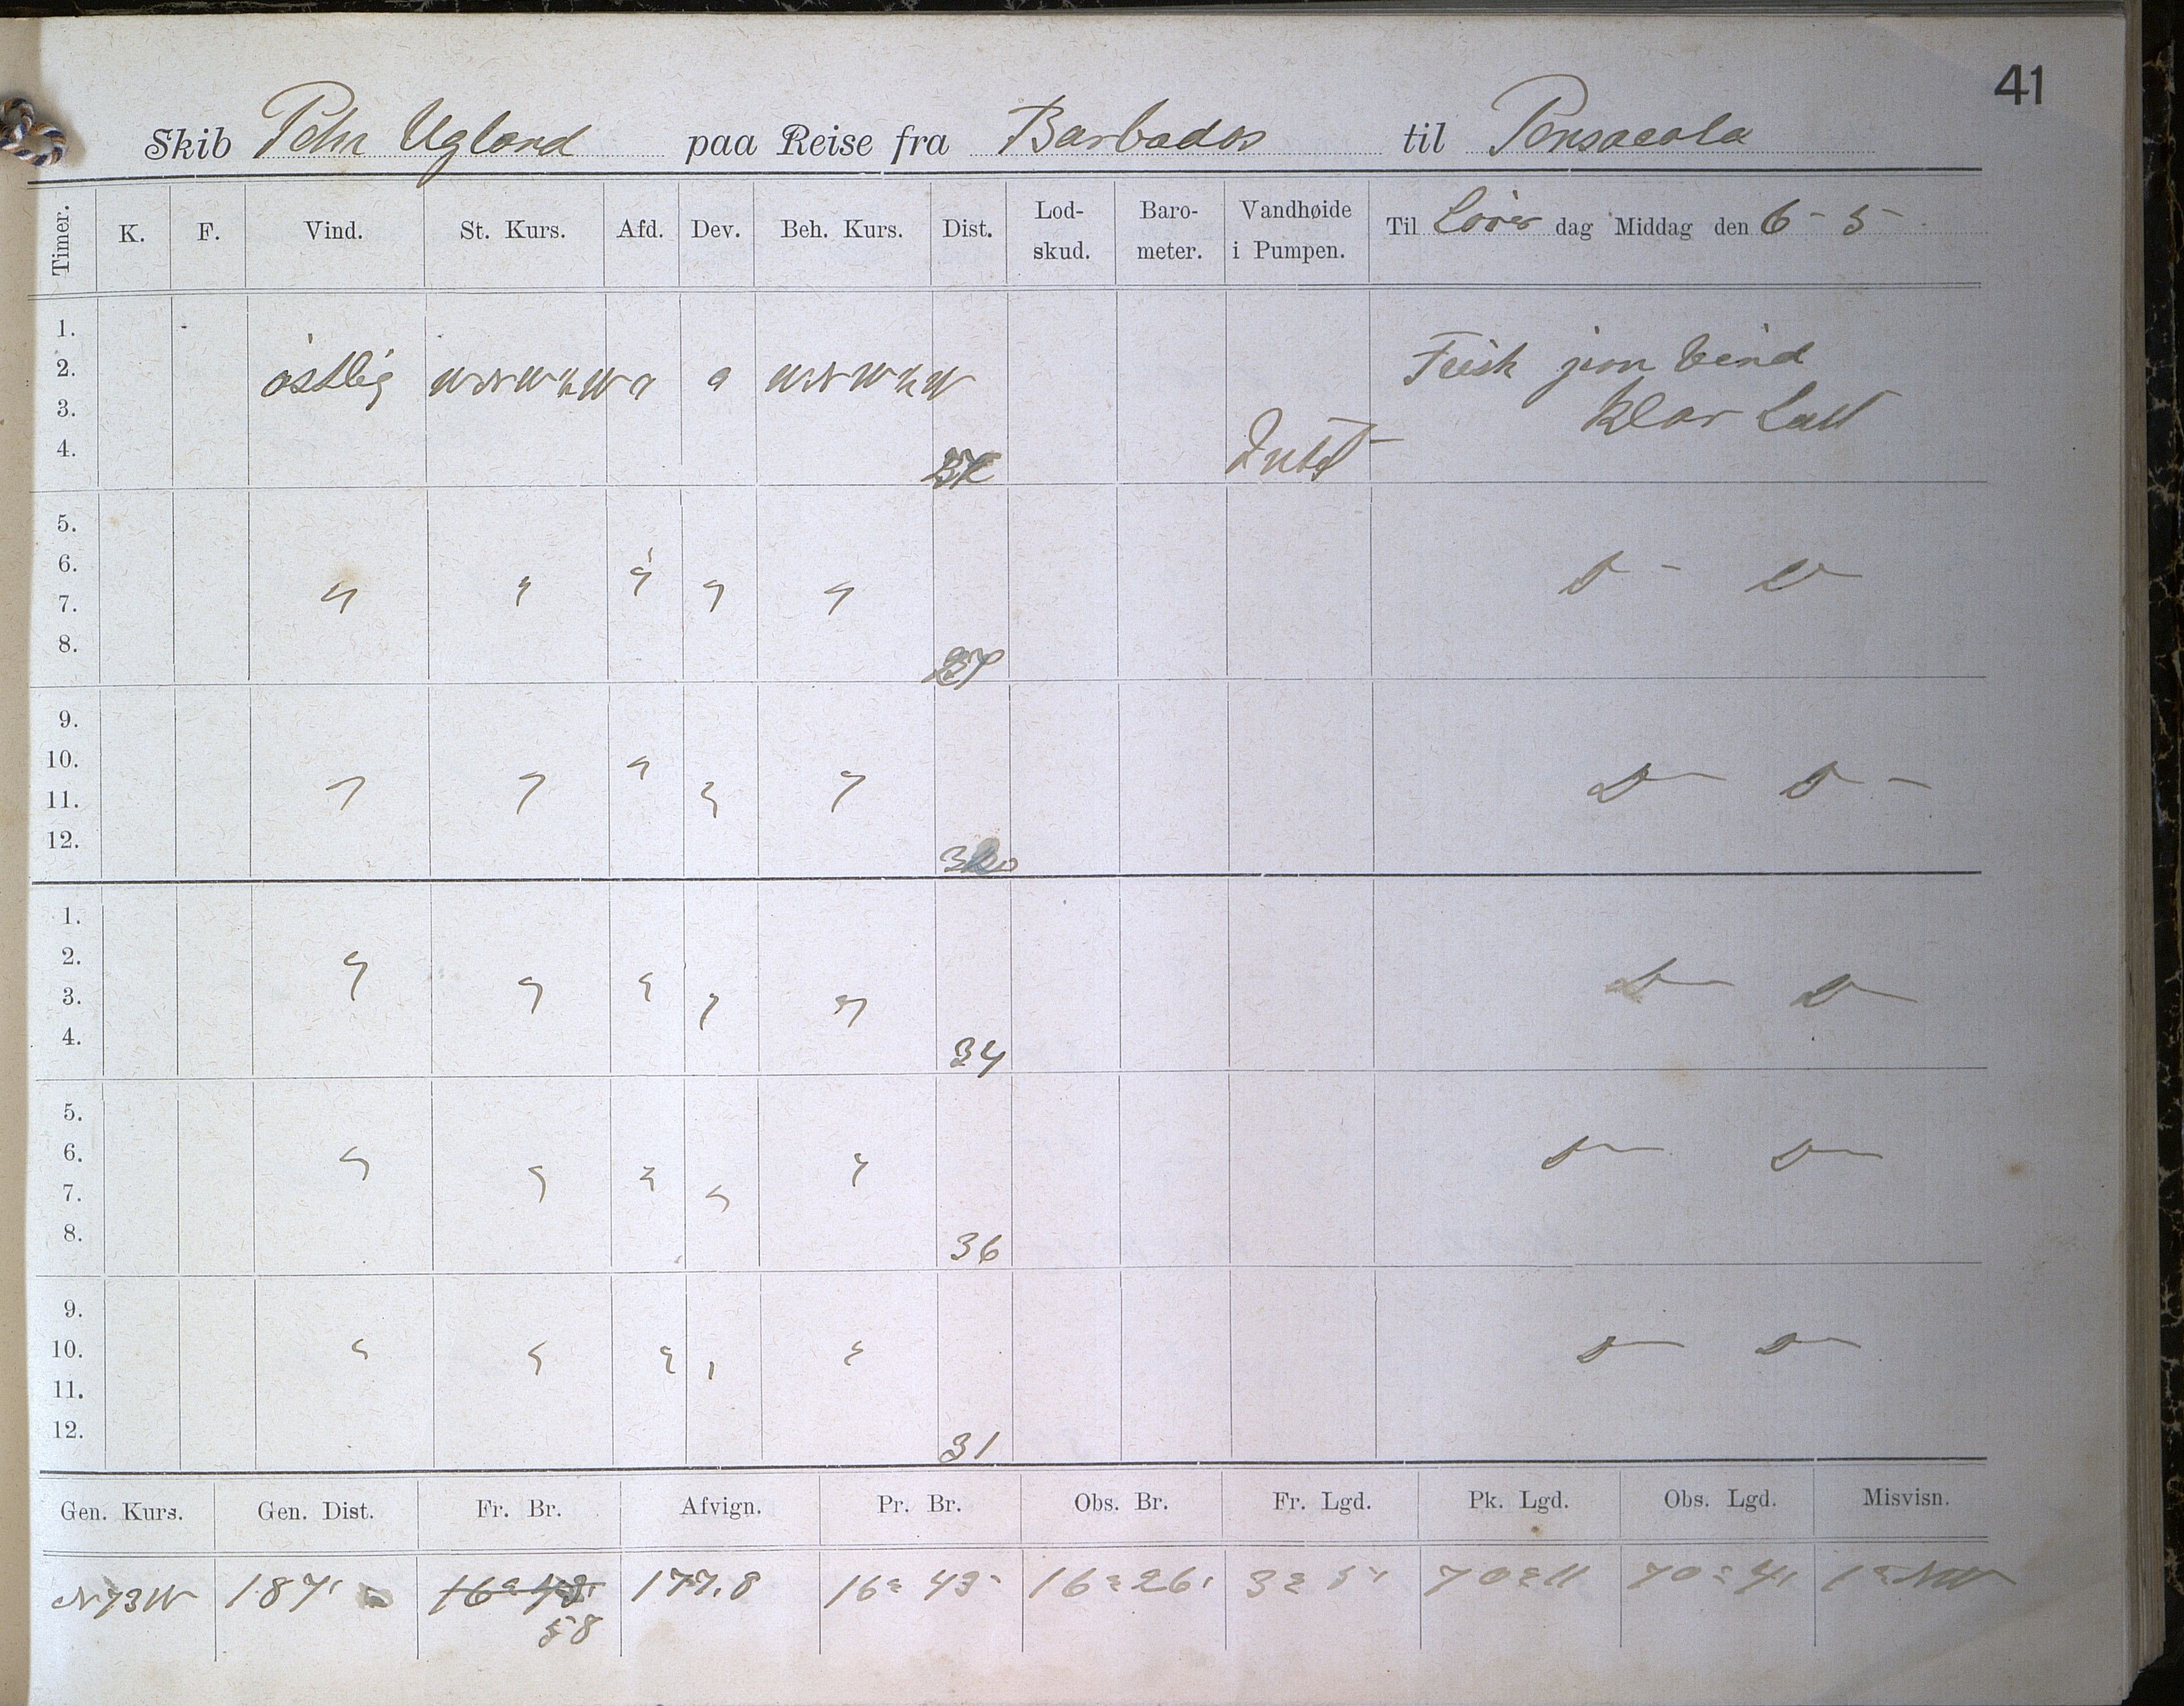 41
Skib Pehr Ugland paa Reise fra Barbados til Pensacola
Timer. K. F. Vind. St. Kurs. Afd. Dev. Beh. Kurs. Dist. Lod-skud. Baro-meter. Vandhøide i Pumpen. Til Löver dag Middag den 6 - 5 -
1.
2. östlig Frisk jevn Vind
3. klar Luft
4. Intet
5.
6. D - D
7. " " " " "
8. 27
9.
10. D - D -
11. " " " " "
12.
1.
2. D - D -
3. " " " " "
4. 34
5.
6. D - D -
7. " " " " "
8. 36
9.
10. " " " " " D - D -
11.
12. 31
Gen. Kurs. Gen. Dist. Fr. Br. Afvign. Pr. Br. Obs. Br. Fr. Lgd. Pk. Lgd. Obs. Lgd. Misvisn.
N73W 187' 177,8 16° 43' 16° 26' 3° 5' 70° 11 70° 4' 1° NW
58